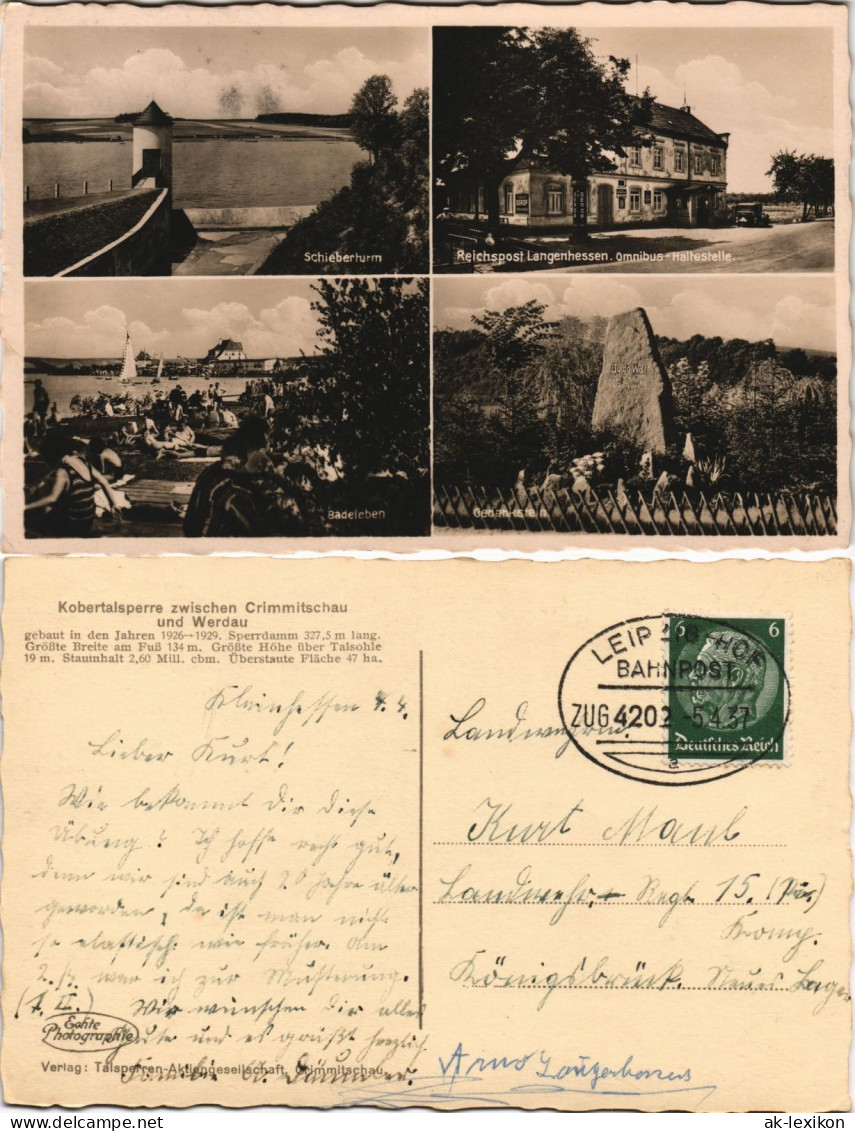 Schieberturm
Reichspost Langenhessen. Omnibus-Haltestelle.
Badeleben
Gedenkstein
Kobertalsperre zwischen Crimmitschau
und Werdau
gebaut in den Jahren 1926—1929. Sperrdamm 327,5 m lang.
Größte Breite am Fuß 134 m. Größte Höhe über Talsohle
19 m. Stauinhalt 2,60 Mill. cbm. Überstaute Fläche 47 ha.
Kleinhessen 4.4.
Lieber Kurt!
Wie bekommt Dir diese
Übung? Ich hoffe recht gut,
denn wir sind auch 20 Jahre älter
geworden, da ist man nicht
so elastisch wie früher. Am
2./4. war ich zur Musterung.
Wir wünschen Dir alles
Gute und es grüßt herzlich
Familie
Echte
Photographie
Verlag: Talsperren-Aktiengesellschaft, Crimmitschau
LEIPZIG-HOF
BAHNPOST
ZUG 4202 -5.4.37
a
6 6
Deutsches Reich
Landwehrm.
Kurt Maul
Landwehr-Regt. 15.
Komp.
Königsbrück. Neues Lager
Arno
ak-lexikon